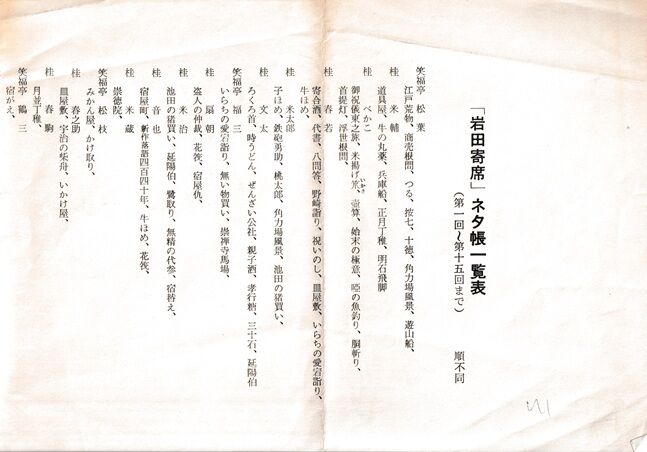 「岩田寄席」ネタ帳一覧表
（第一回〜第十五回まで）　順不同
笑福亭　松葉
江戸荒物、商売根問、つる、按七、十徳、角力場風景、遊山船、
桂　米輔
道具屋、牛の丸薬、兵庫船、正月丁稚、明石飛脚
桂　べかこ
御祝儀東之旅、米揚げ笊、壺算、始末の極意、啞の魚釣り、胴斬り、
いかき
首提灯、浮世根問、
桂　春若
寄合酒、代書、八問答、野崎詣り、祝いのし、皿屋敷、いらちの愛宕詣り、
牛ほめ、
桂　米太郎
子ほめ、鉄砲勇助、桃太郎、角力場風景、池田の猪買い、
桂　文太
ろくろ首、時うどん、ぜんざい公社、親子酒、孝行糖、三十石、延陽伯
笑福亭　福三
いらちの愛宕詣り、無い物買い、崇禅寺馬場、
桂　扇朝
盗人の仲裁、花筏、宿屋仇、
桂　米治
池田の猪買い、延陽伯、鷺取り、無精の代参、宿替え、
桂　音也
宿屋町、新作落語四百四十年、牛ほめ、花筏、
桂　米蔵
崇徳院、
笑福亭　松枝
みかん屋、かけ取り、
桂　春之助
皿屋敷、宇治の柴舟、いかけ屋、
桂　春駒
月並丁稚、
笑福亭　鶴三
宿がえ、